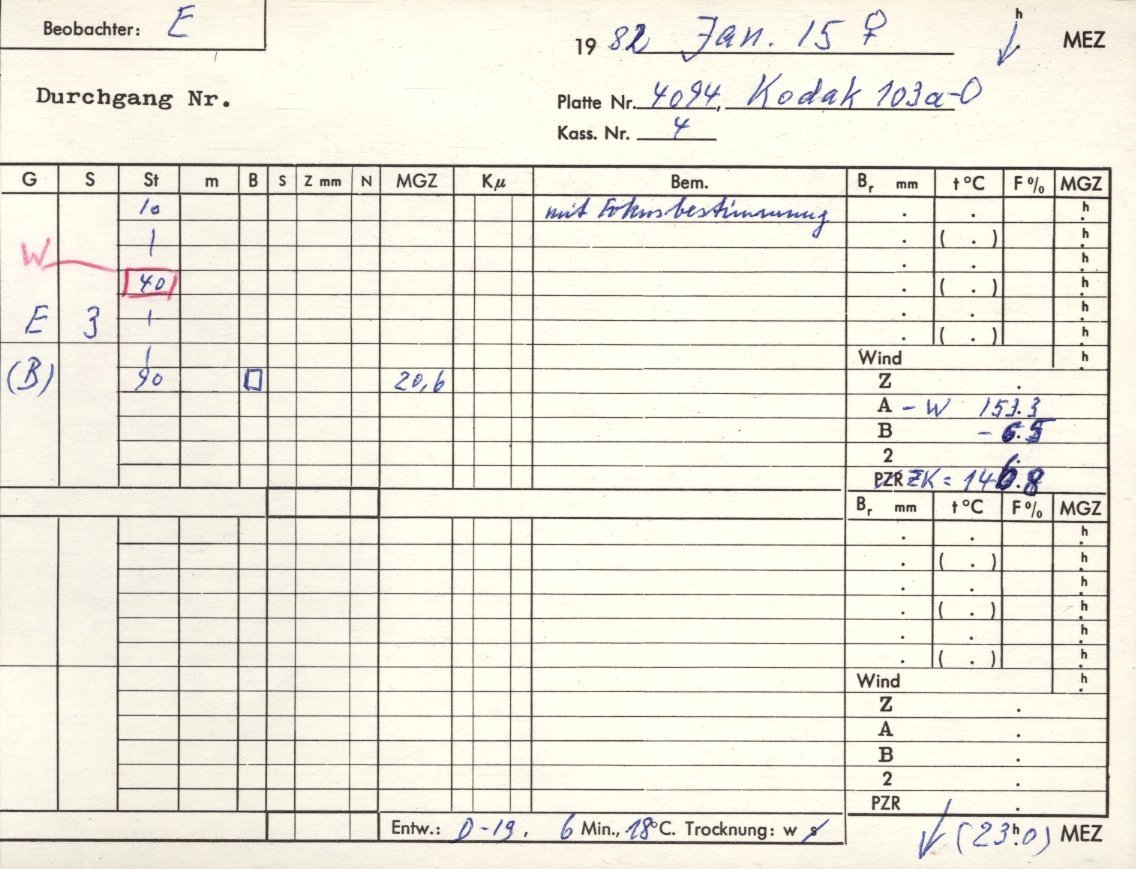 Beobachter: E
19 82 Jan. 15 ♀ h MEZ
Durchgang Nr.
Platte Nr. 4094, Kodak 103a-O
Kass. Nr. 4
G S St m B S Z mm N MGZ Kμ Bem. Br mm t °C F % MGZ
10 mit Fokusbestimmung . . h
. ( . ) h
W . . h
40 . ( . ) h
E 3 . . h
. ( . ) h
Wind h
(B) 90 □ 20,6 Z .
A - W 153.3
B - 6.5
2 .
PZR ZK = 146.8
Br mm t °C F % MGZ
. . h
. ( . ) h
. . h
. ( . ) h
. . h
. ( . ) h
Wind h
Z .
A .
B .
2 .
PZR .
Entw.: D-19, 6 Min., 18°C. Trocknung: w s
(23h.0) MEZ